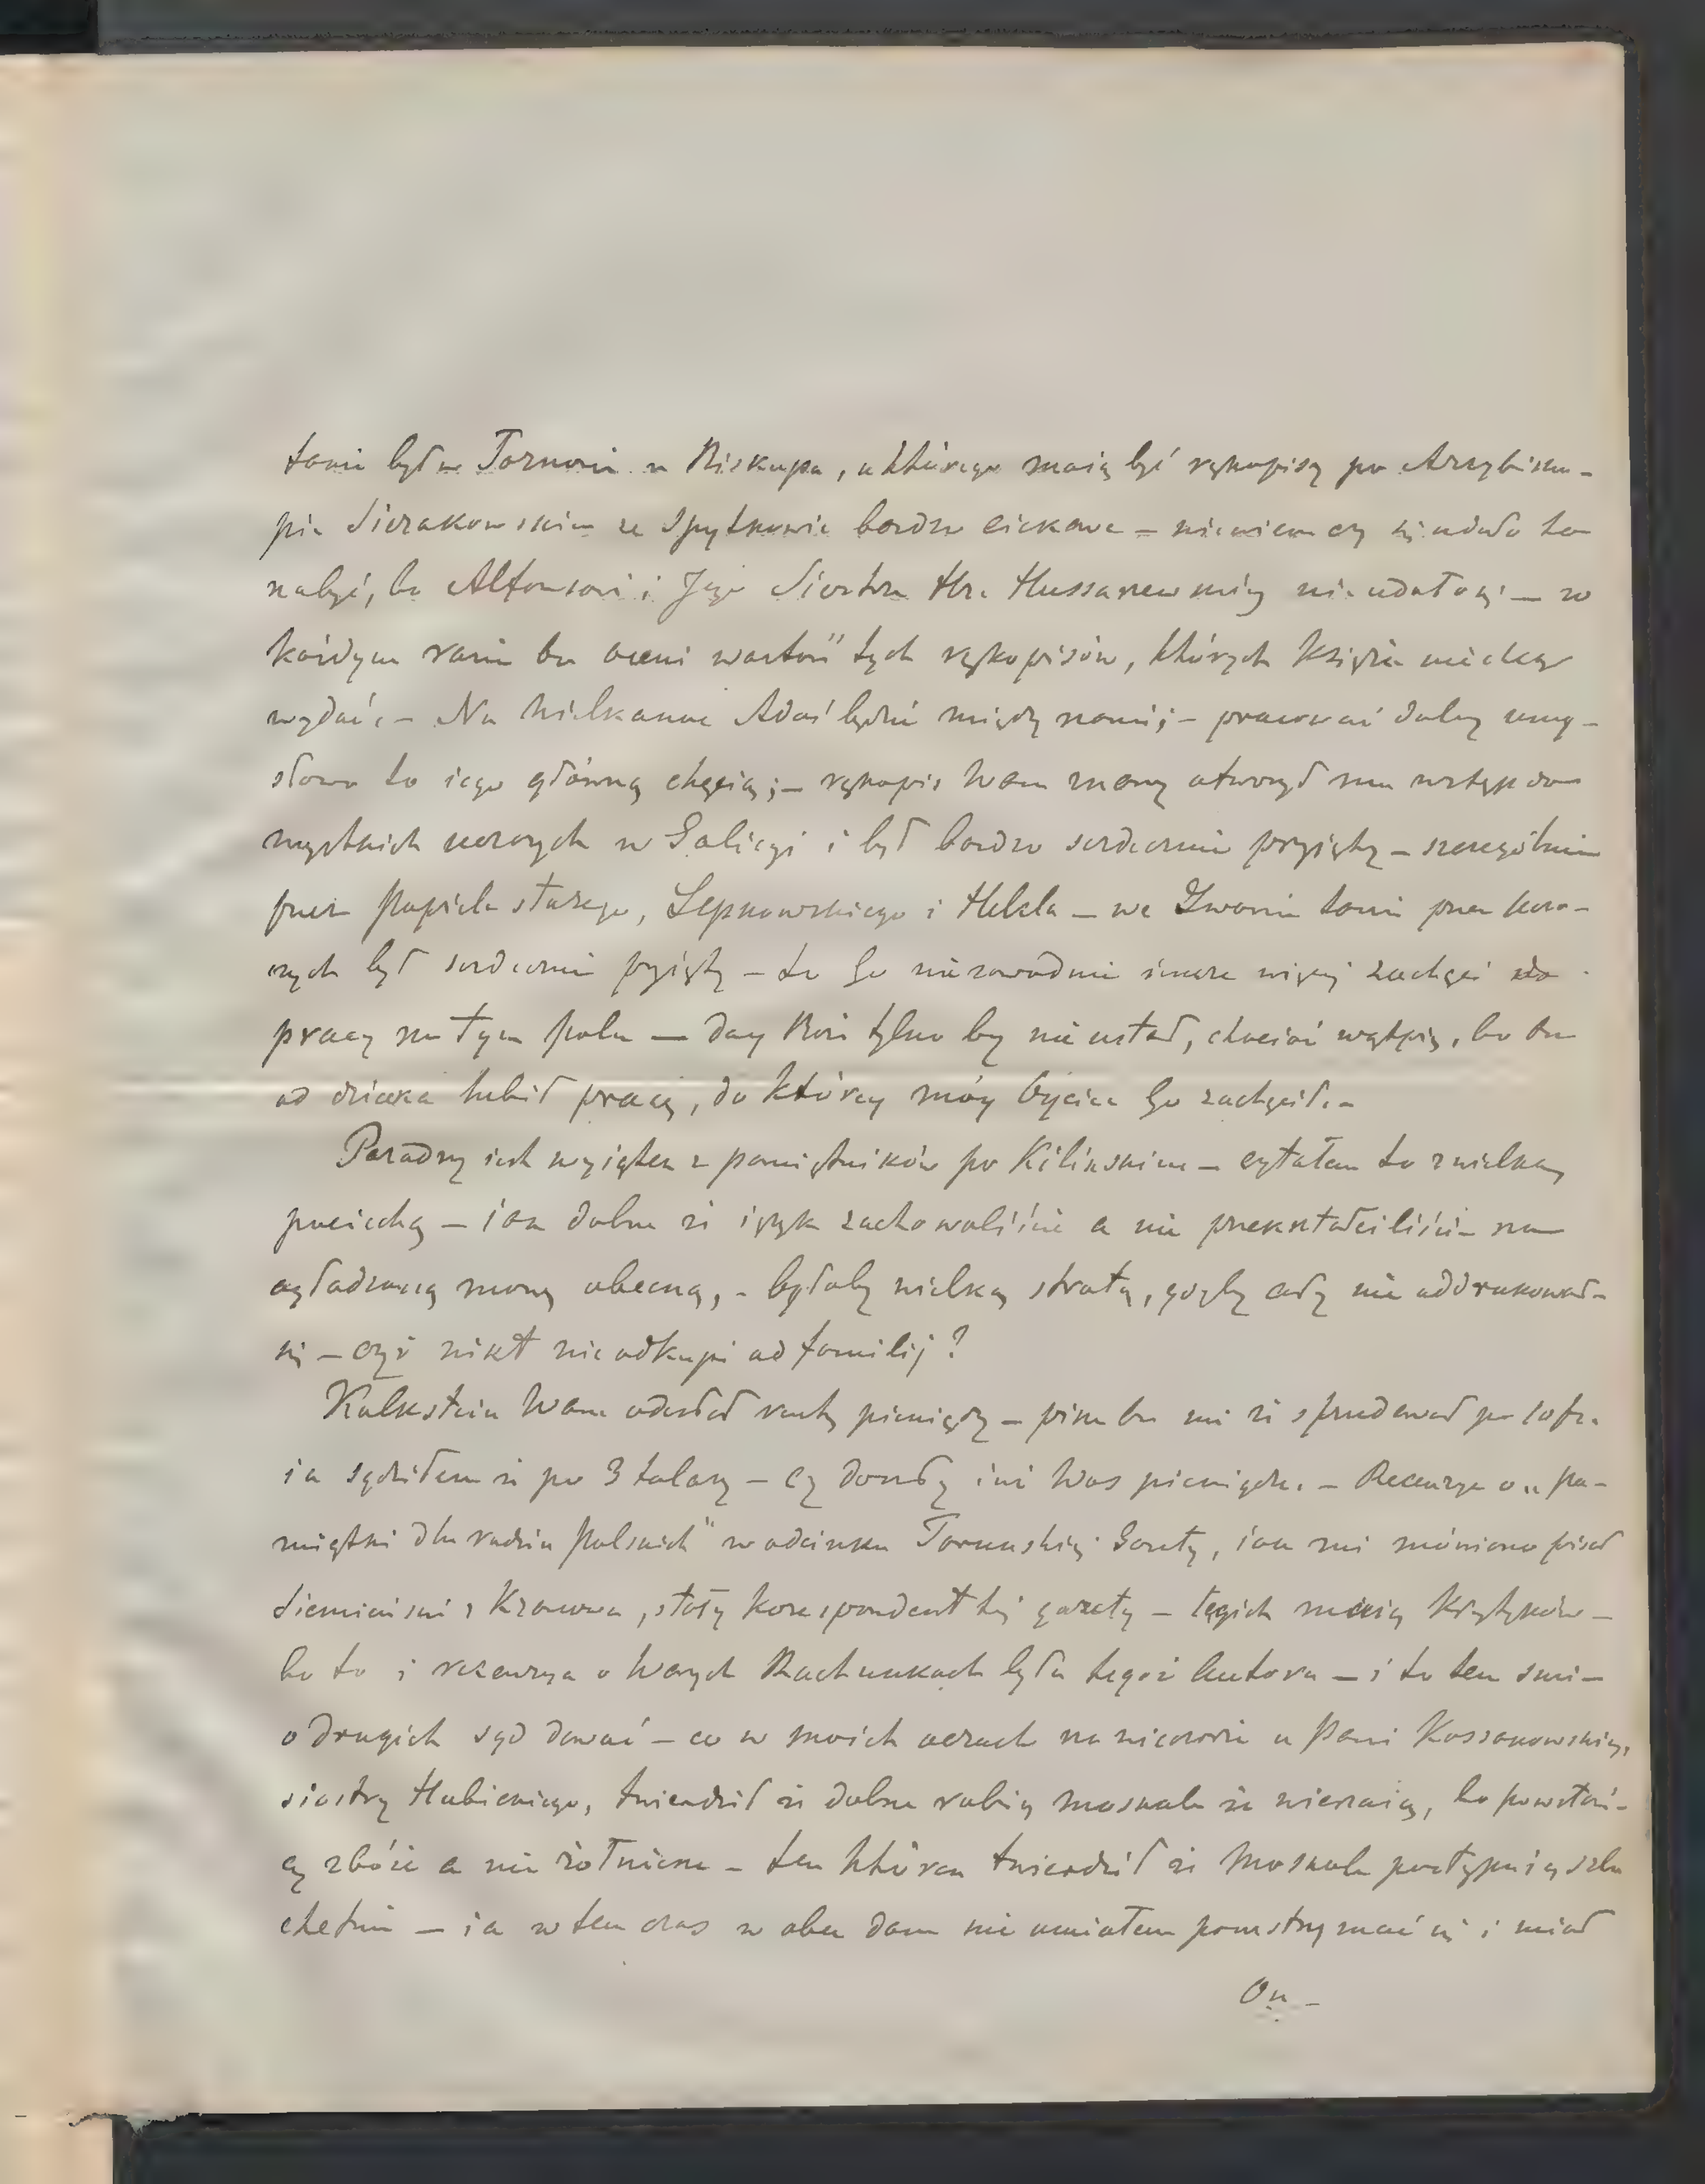 także był w Tarnowie u Biskupa, u którego maią być rękopisy po Arcybisku-
pie Sierakowskim ze Spytkowic bardzo ciekawe – niewiem czy się udało to
nabyć, bo Alfonsowi i Jego Siostrze Hr. Hussarzewskiey nie udało się – w
każdym razie on oceni wartość tych rękopisów, których Księża nie chcą
wydać. – Na Wielkanoc Adaś będzie między nami; – pracować daley umy-
słowo to iego główną chęcią; – rękopis Wam znany otworzył mu wstęp do
wszystkich uczonych w Galicyi i był bardzo serdecznie przyięty – szczególnie
przez Popiela starego, Łepkowskiego i Helcla – we Lwowie także przez uczo-
nych był serdecznie przyięty – to Go niezawodnie ieszcze więcej zachęci do
pracy na tym polu – day Boże tylko by nie ustał, chociaż wątpię, bo on
od dziecka lubił pracę, do którey móy Oyciec Go zachęcił. –
Paradny iest wyiątek z pamiętników po Kilińskim – czytałam to z wielką
pociechą – iak dobrze że ięzyk zachowaliście a nie przekształciliście na
ogładzoną mowę obecną, – byłoby wielką stratą, gdyby cały nie oddrukował
się – czyż nikt nie odkupi od familij?
Kalkstein Wam odesłał resztę pieniędzy – pisze on mi że sprzedawał po 10 fr.
ia sądziłem że po 3 talary – czy doszły iuż Was pieniądze. – Recenzye o „pa-
miętni dla rodzin polskich" w odcinku Toruńskiej Gazety, iak mi mówiono pisał
Siemieński z Krakowa, stały korespondent tej gazety – tęgich maią krytyków –
bo to i recenzya o Waszych Rachunkach była tegoż Autora – i to ten śmie
o drugich sąd dawać – co w moich oczach na wieczorze u Pani Kossakowskiey,
siostry Hubickiego, twierdził że dobrze robią moskale że wieszaią, bo powstań-
cy zbóie a nie żołnierze – ten który twierdził że Moskale postępuią szla
chetnie – ia w ten czas w obec dam nie umiałem powstrzymać się i miał
On –